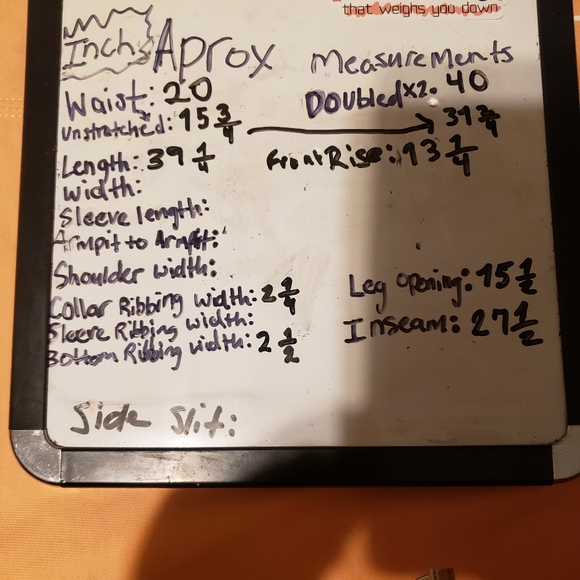 that weighs you down
Inch. Aprox Measurements
Waist: 20 Doubled x2. 40
Unstratched: 15 3/4 → 31 3/4
Length: 39 1/4 Front Rise: 13 1/4
Width:
Sleeve length:
Armpit to Armpit:
Shoulder width:
Collar Ribbing width: 2 1/4 Leg Opening: 15 1/2
Sleeve Ribbing width: Inseam: 27 1/2
Bottom Ribbing width: 2 1/2
Side Slit: